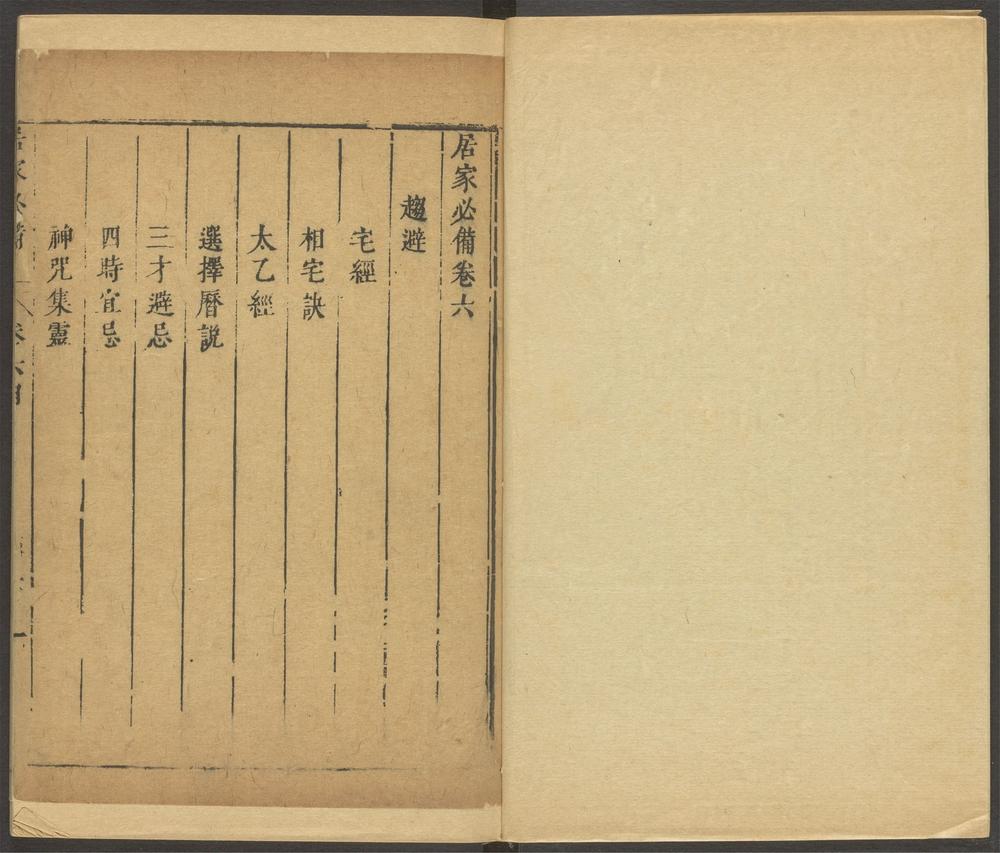 居家必備卷六
趨避
宅經
相宅訣
太乙經
選擇曆説
三才避忌
四時宜忌
神咒集靈
居家必備
卷六目